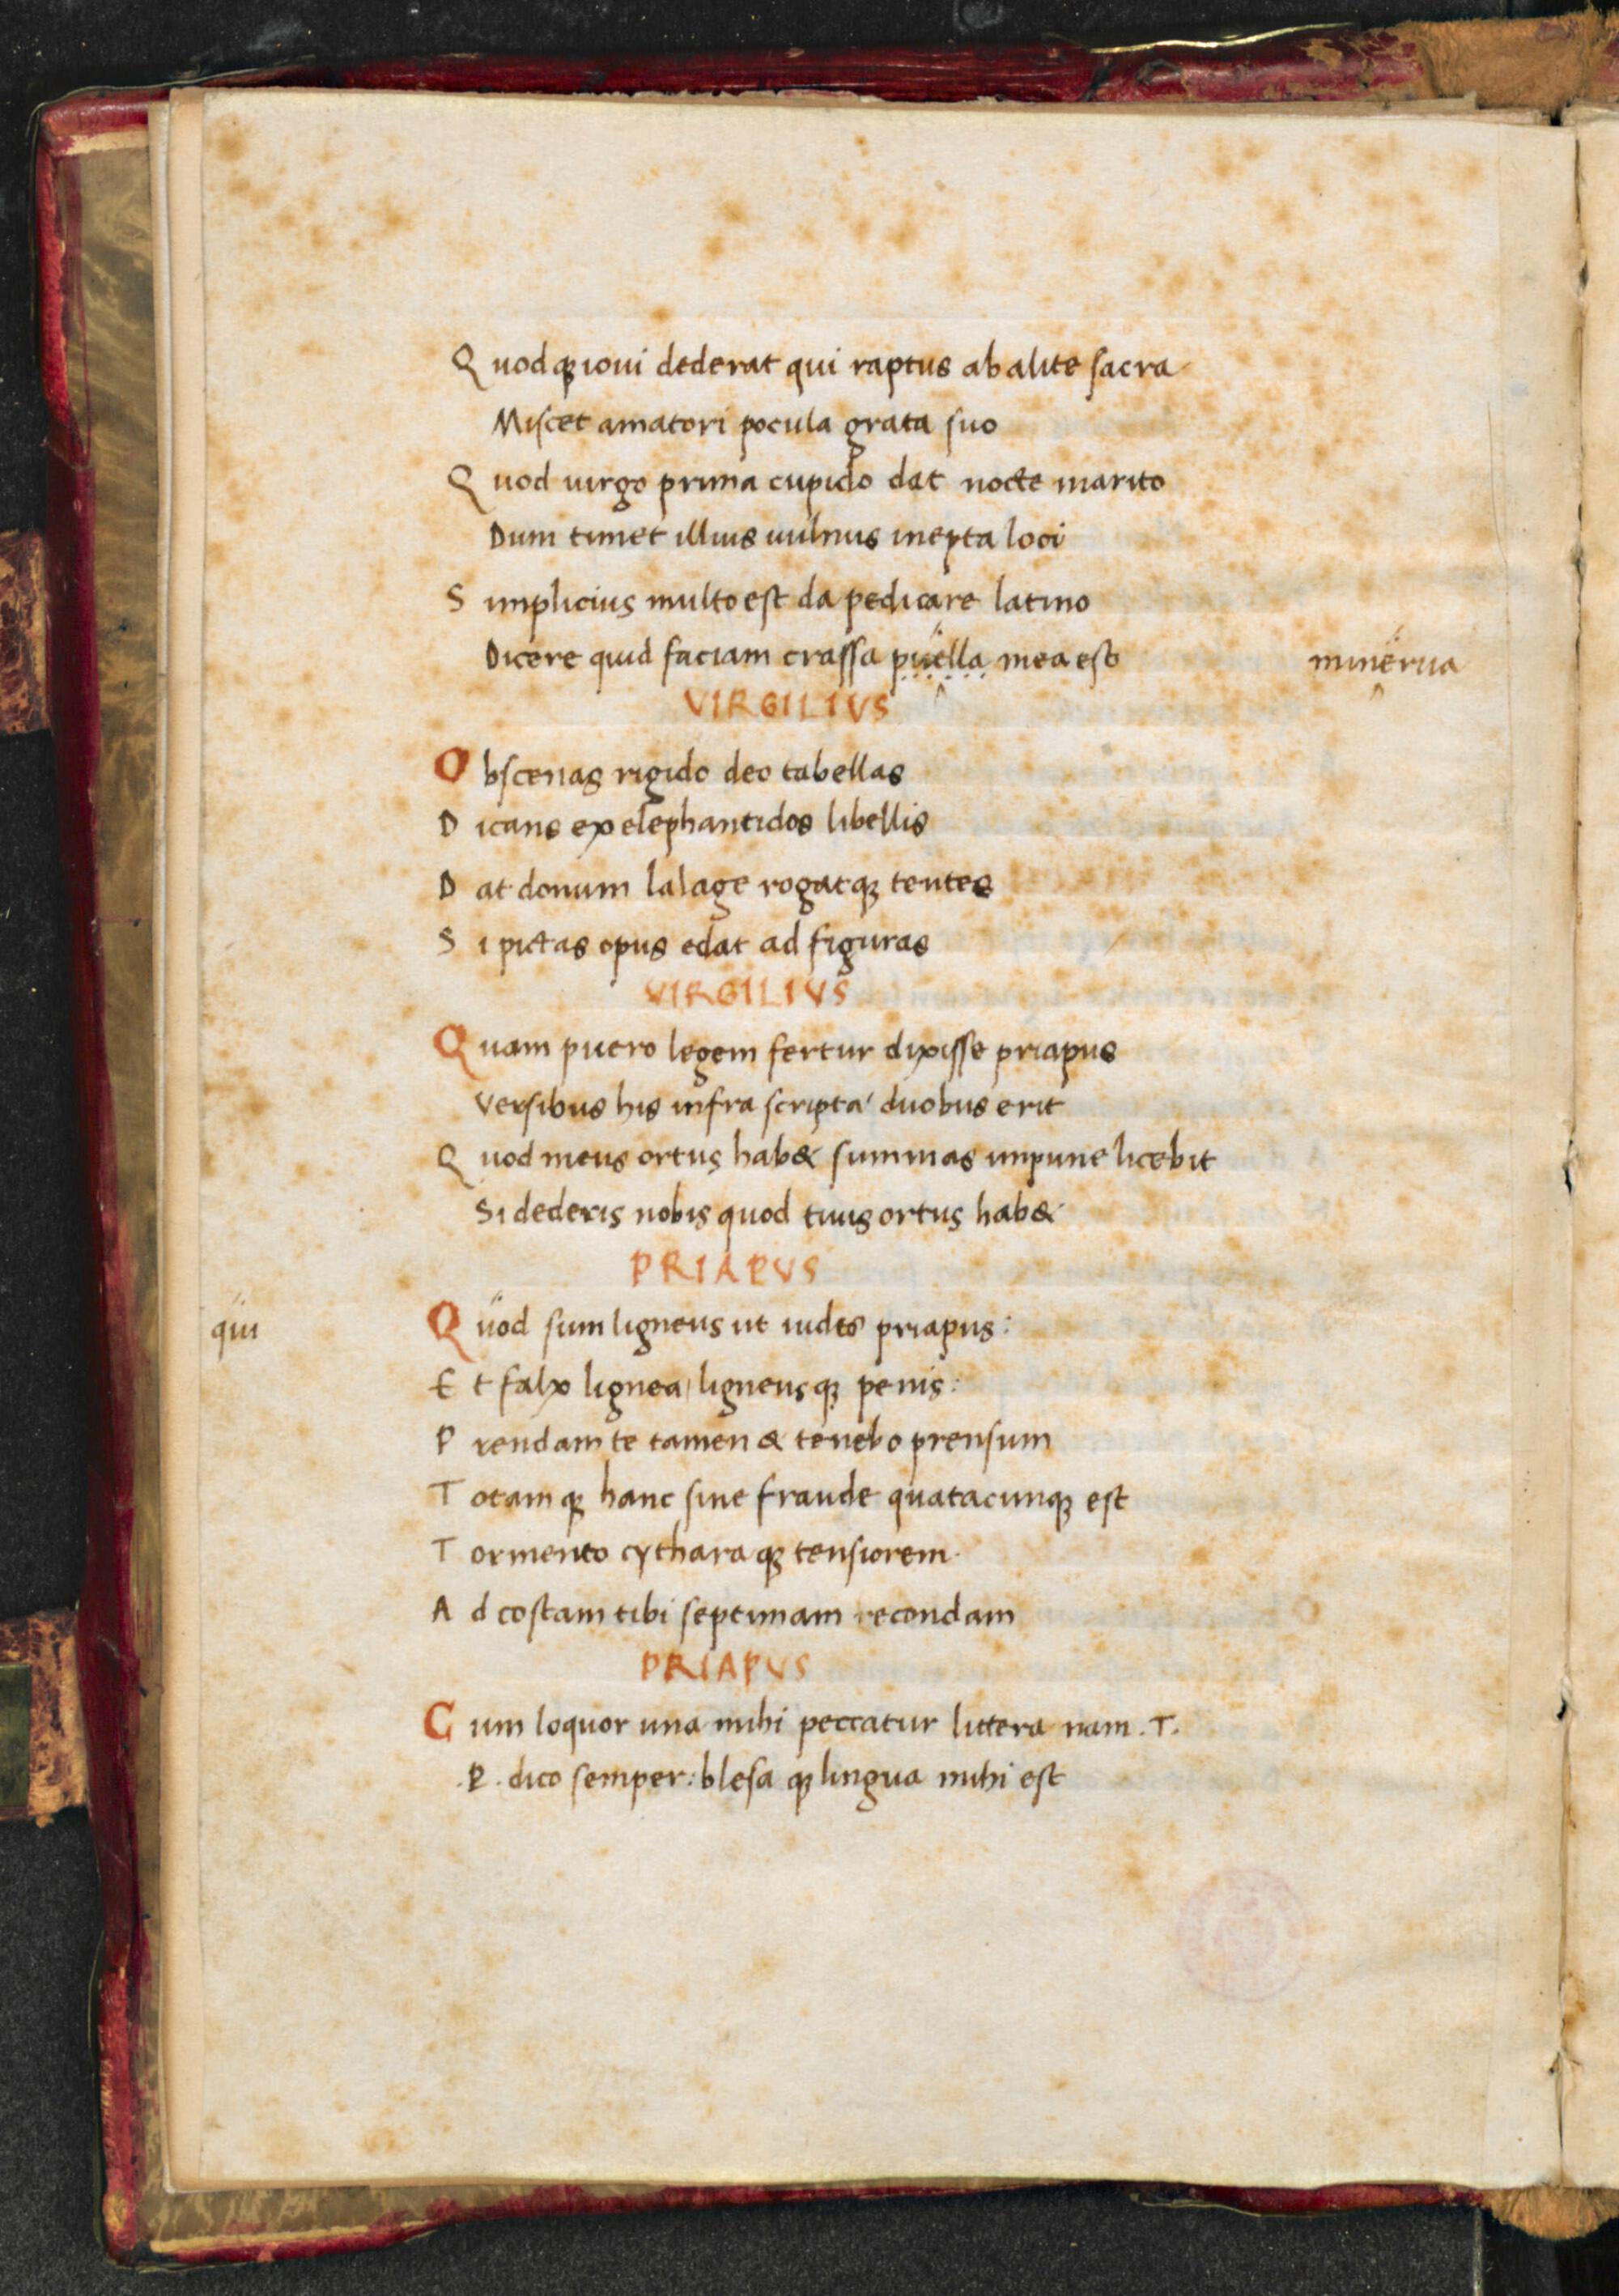 Quodq; ioui dederat qui raptus ab alite sacra
Miscet amatori pocula grata suo
Quod uirgo prima cupido dat nocte marito
Dum timet illius uulnus inepta loci
Simplicius multo est da pedicare latino
Dicere quid faciam crassa puella mea est
minerua
VIRGILIVS
Obscenas rigido deo tabellas
Dicans ex elephantidos libellis
Dat donum lalage rogatq; tentes
Si pictas opus edat ad figuras
VIRGILIVS
Quam puero legem fertur dixisse priapus
Versibus his infra scripta duobus erit
Quod meus ortus hab& summas impune licebit
Si dederis nobis quod tuus ortus hab&
PRIAPVS
qui
Quod sum ligneus ut uides priapus:
Et falx lignea ligneusq; penis:
Prendam te tamen & tenebo prensum
Totamq; hanc sine fraude quatacunq; est
Tormento cytharaq; tensiorem.
Ad costam tibi septimam recondam
PRIAPVS
Cum loquor una mihi peccatur littera nam .T.
.P. dico semper: blesaq; lingua mihi est